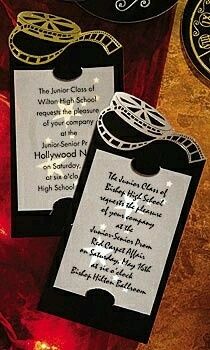 The Junior Class of
Wilton High School
requests the pleasure
of your company
at the
Junior-Senior Pr
Hollywood N
on Saturday,
at six o'clo
High School
The Junior Class of
Bishop High School
requests the pleasure
of your company
at the
Junior-Senior Prom
Red Carpet Affair
on Saturday, May 16th
at six o'clock
Bishop Hilton Ballroom